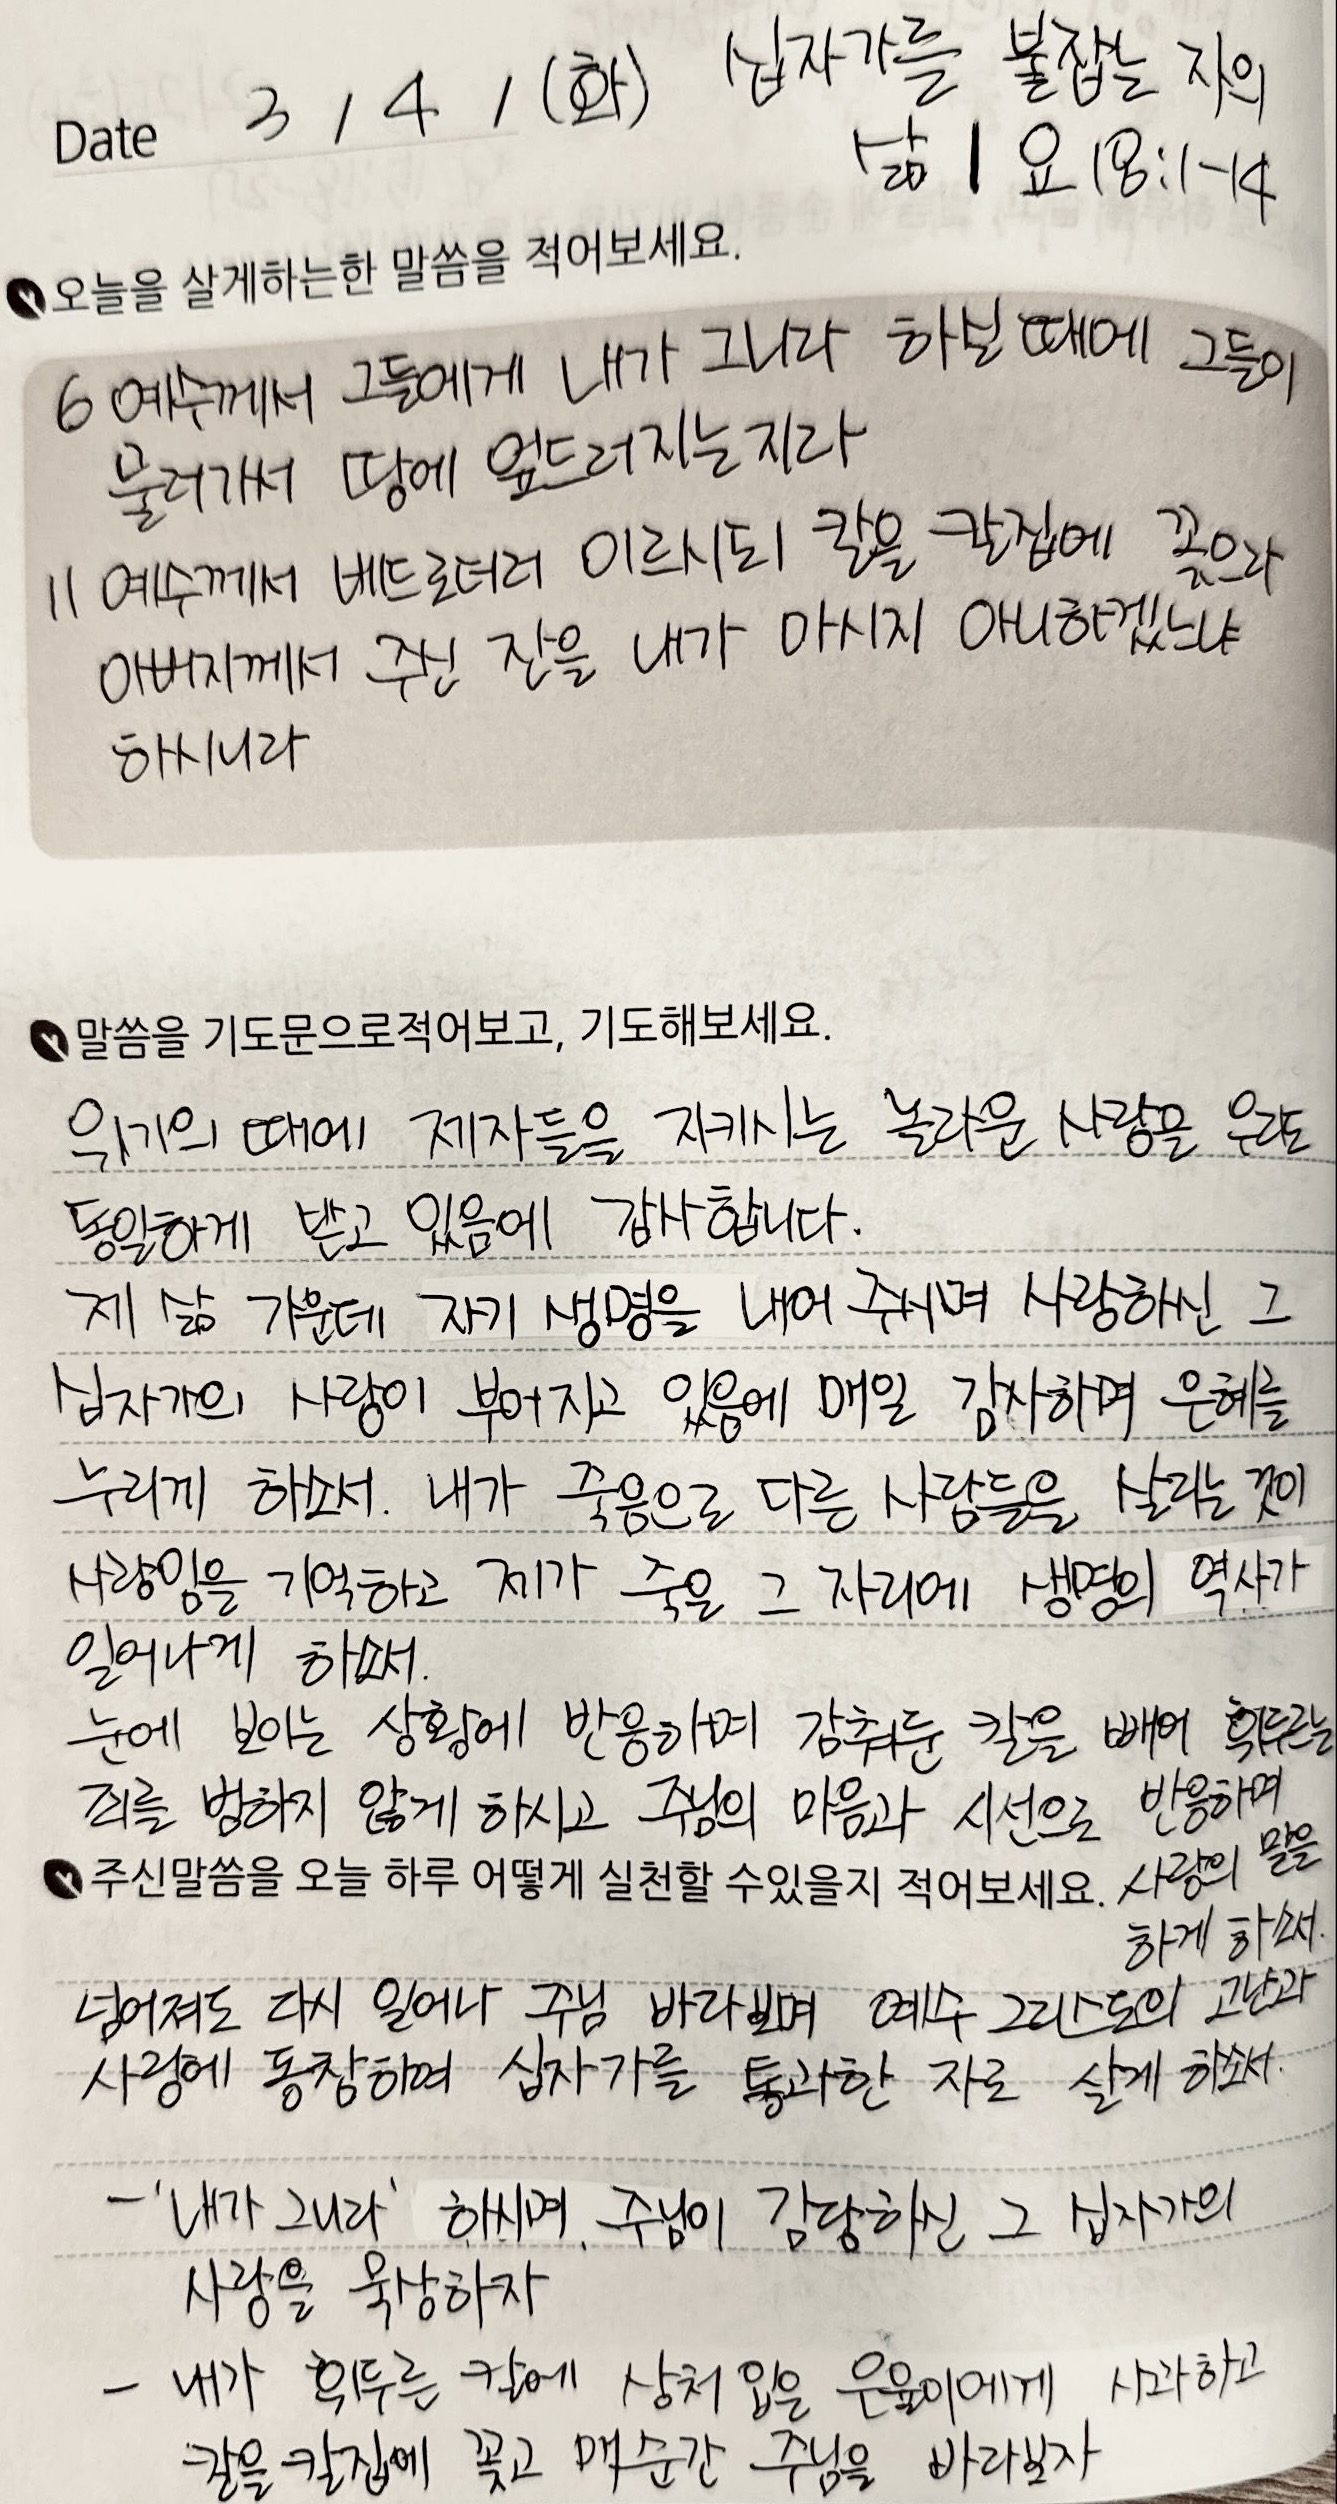 Date 3 / 4 / (화) 십자가를 붙잡는 자의
삶 | 요 18:1-14
오늘을 살게하는한 말씀을 적어보세요.
6 예수께서 그들에게 내가 그니라 하실 때에 그들이
물러가서 땅에 엎드러지는지라
11 예수께서 베드로더러 이르시되 칼을 칼집에 꽂으라
아버지께서 주신 잔을 내가 마시지 아니하겠느냐
하시니라
말씀을 기도문으로적어보고, 기도해보세요.
위기의 때에 제자들을 지키시는 놀라운 사랑을 우리도
동일하게 받고 있음에 감사합니다.
제 삶 가운데 자기 생명을 내어 주시며 사랑하신 그
십자가의 사랑이 부어지고 있음에 매일 감사하며 은혜를
누리게 하소서. 내가 죽음으로 다른 사람들을 살리는 것이
사랑임을 기억하고 제가 죽은 그 자리에 생명의 역사가
일어나게 하소서.
눈에 보이는 상황에 반응하며 감춰둔 칼을 빼어 휘두르는
죄를 범하지 않게 하시고 주님의 마음과 시선으로 반응하며
사랑의 말을
하게 하소서.
주신말씀을 오늘 하루 어떻게 실천할 수있을지 적어보세요.
넘어져도 다시 일어나 주님 바라보며 예수 그리스도의 고난과
사랑에 동참하며 십자가를 통과한 자로 살게 하소서.
- '내가 그니라' 하시며, 주님이 감당하신 그 십자가의
사랑을 묵상하자
- 내가 휘두른 칼에 상처 입은 은율이에게 사과하고
칼을 칼집에 꽂고 매순간 주님을 바라보자